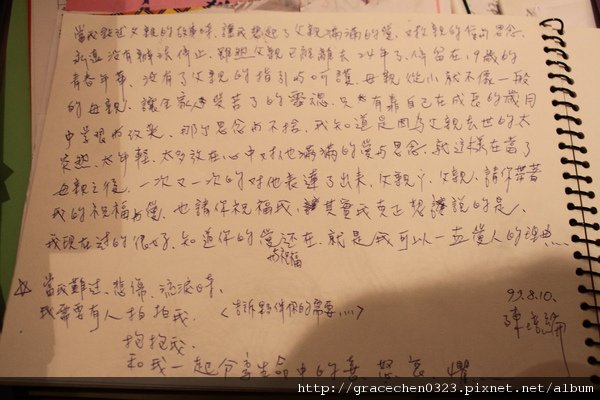 當我敘述父親的故事時，讓我想起了父親滿滿的愛，對父親的信与思念，
永遠沒有辦法停止，雖然父親已經離去24年了，停留在19歲的
青春年華，沒有了父親的指引与呵護，母親從小就不像一般
的母親，讓全家失了的靈魂，只有靠自己在成長的歲月
中學習，那個思念与不捨，我知道是因為父親去世的太
突然，太年輕，太多放在心中對他滿滿的愛与思念，就這樣在當了
母親之後，一次又一次的对他表達了出來，父親，父親，請你帶著
我的祝福与愛，也請你祝福我，其實我真正想說的是，
我現在过的很好，知道你的愛还在，就是我可以一直愛人的理由....
与祝福
☆ 當我難过、悲傷、流淚時，
我需要有人拍拍我，〈告訴夥伴你的需要....〉
抱抱我，
和我一起分享生命中的喜、怒、哀、懼....
99.8.10.
http://gracechen0323.pixnet.net/album